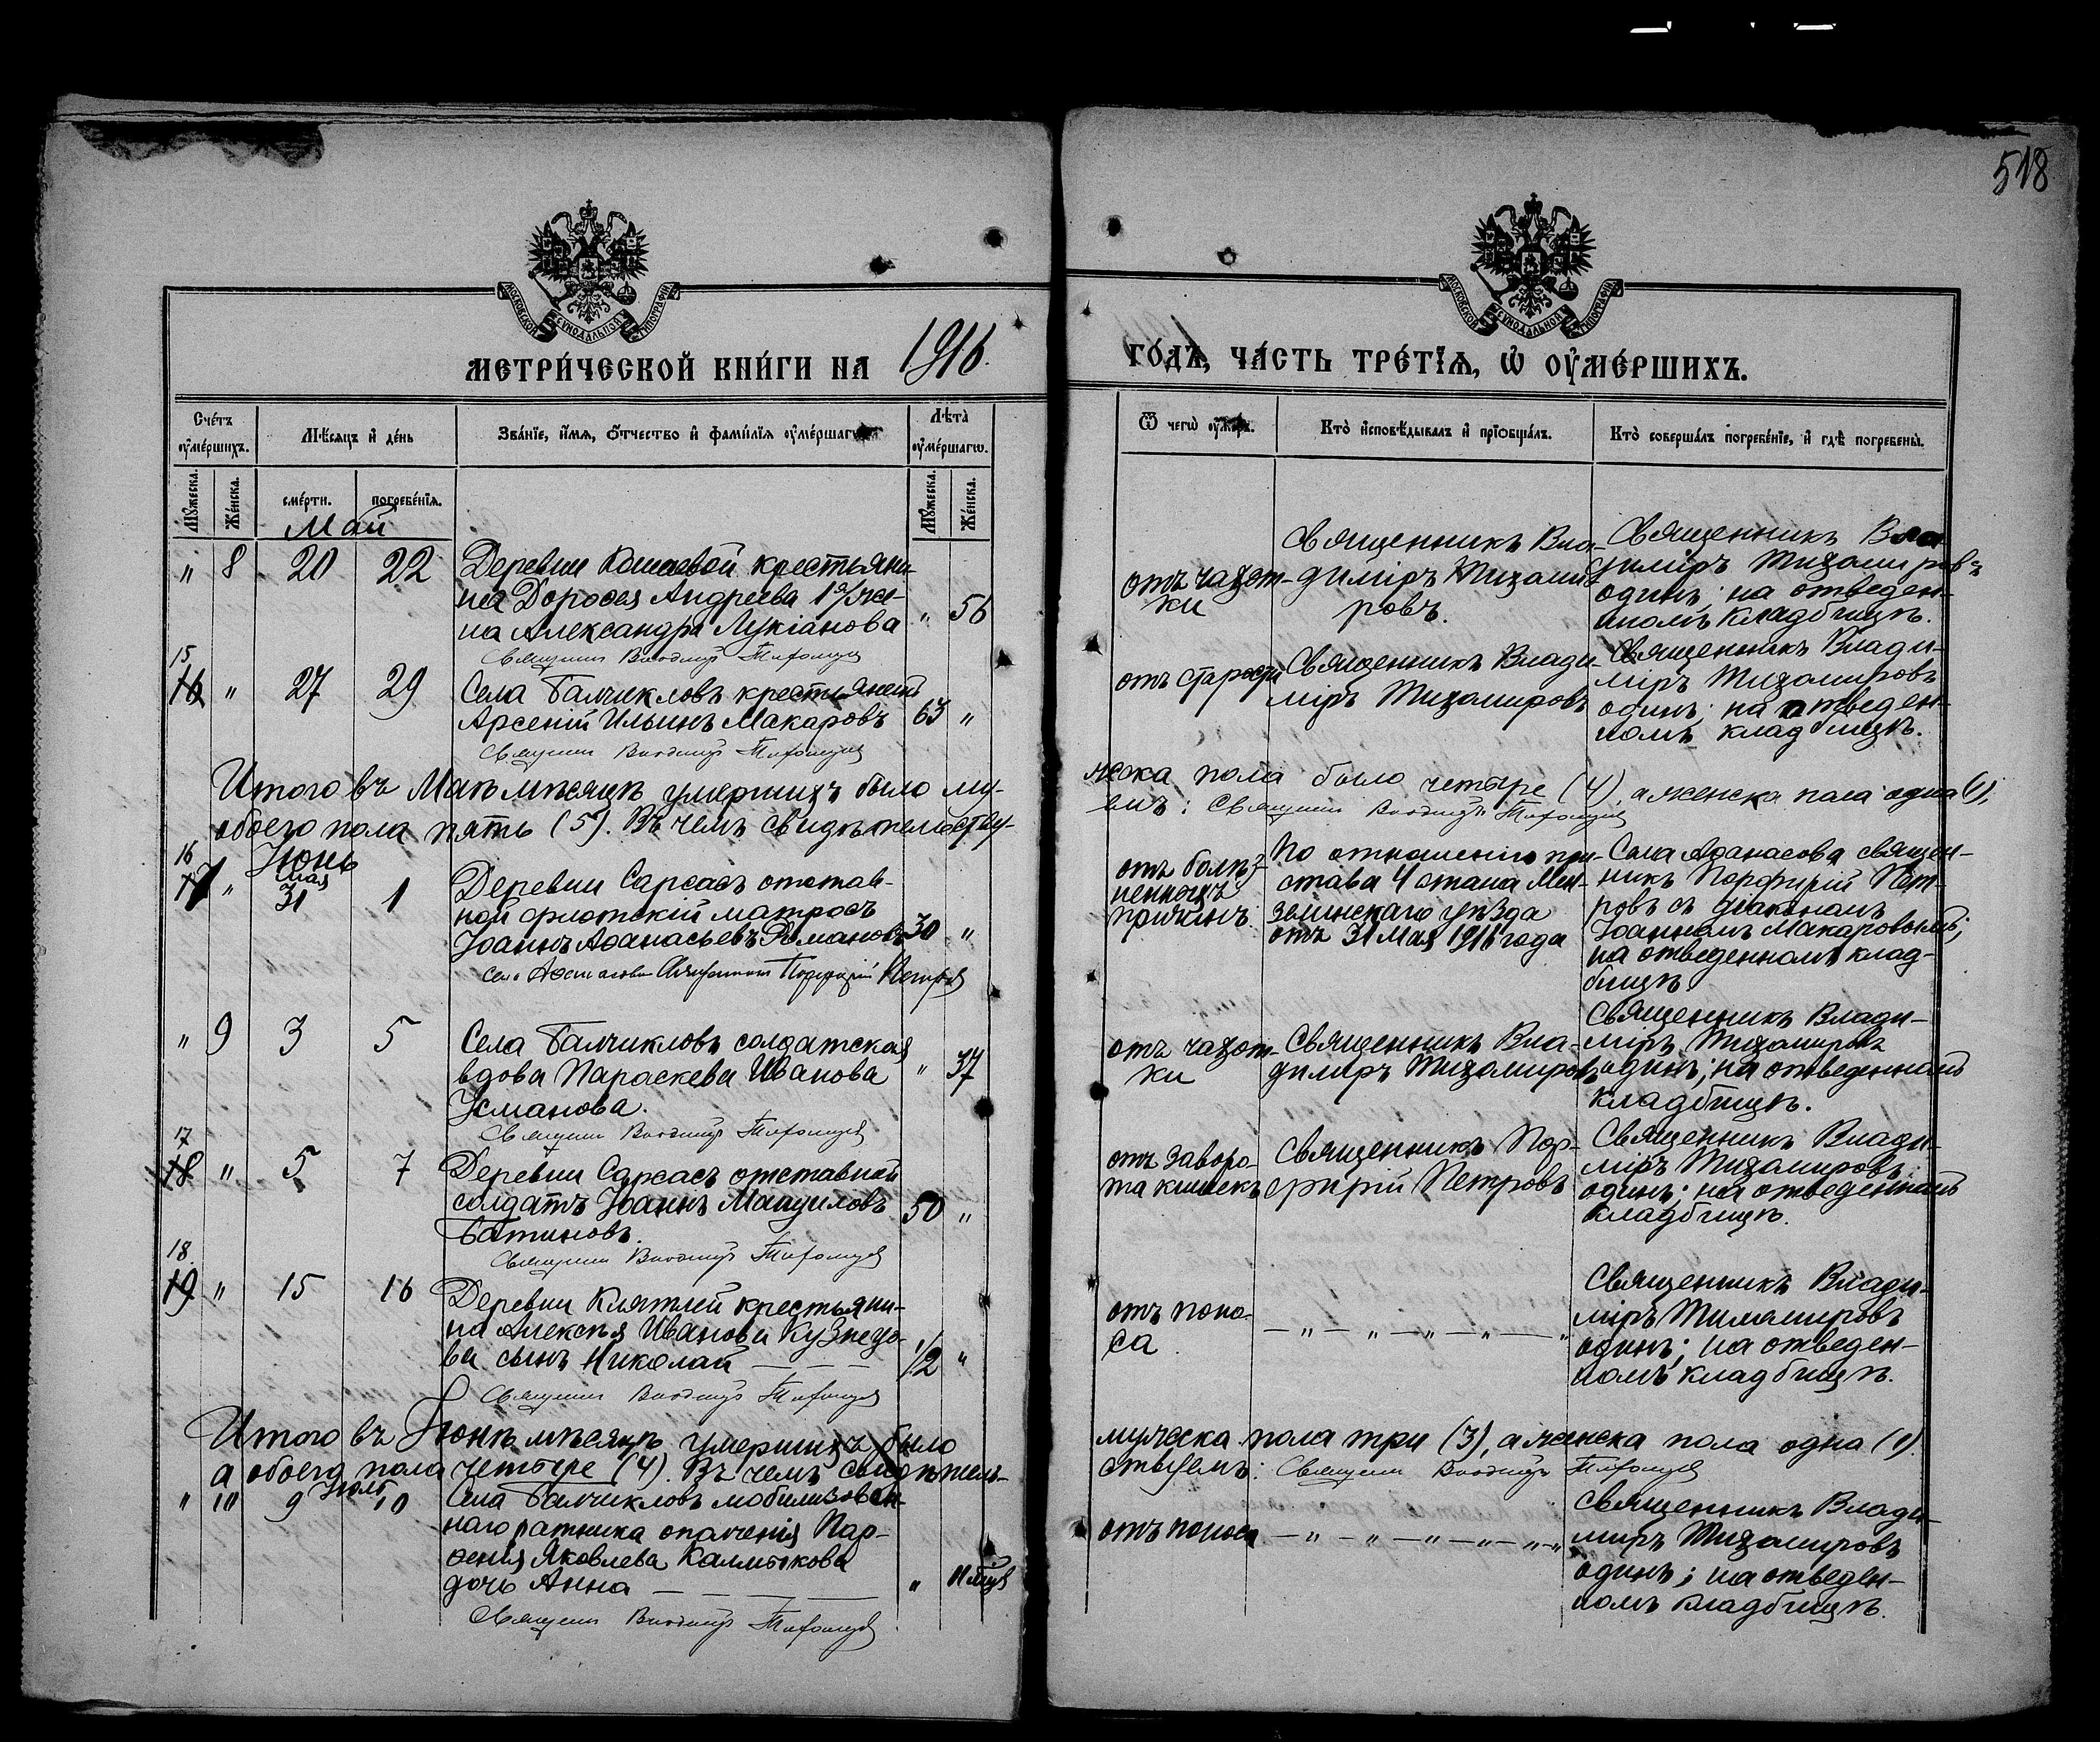 518
МОСКОВСКОЙ СѴНОДАЛЬНОЙ ТИПОГРАФІИ
МОСКОВСКОЙ СѴНОДАЛЬНОЙ ТИПОГРАФІИ
МЕТРИ́ЧЕСКОЙ КНИ́ГИ НА 1916.
ГО́ДЪ, ЧА́СТЬ ТРЕ́ТЇѦ, Ѡ҆ ОУ҆МЕ́РШИХЪ.
Сче́тъ оу҆ме́ршихъ.
Мѣ́сяцъ и҆ де́нь
Зва́нїе, и҆́мѧ, ѻ҆́тчество и҆ фами́лїѧ оу҆ме́ршагѡ
Лѣта̀ оу҆ме́ршагѡ.
Ѿ чегѡ̀ оу҆́меръ.
Кто̀ и҆сповѣ́дывалъ и҆ прїѡбща́лъ.
Кто̀ соверша́лъ погребе́нїе, и҆ гдѣ̀ погребены̀.
Мꙋ́жеска. Же́нска. сме́рти. погребе́нїѧ. Мꙋ́жеска. Же́нска.
Май
" 8 20 22 Деревни Кошаевой крестьяни-
на Дорофея Андреева 1 а/ же-
на Александра Лукіанова " 56
Священ Владимір Тихомиров
отъ чахот-
ки
Священникъ Вла-
диміръ Тихоми-
ровъ.
Священникъ Вла-
диміръ Тихомировъ
одинъ; на отведен-
номъ кладбищѣ.
15
16 " 27 29 Села Балчикловъ крестьянинъ
Арсеній Ильинъ Макаровъ 63 "
Священ Владимір Тихомиров
отъ старости
Священникъ Влади-
міръ Тихомировъ
Священникъ Влади-
міръ Тихомировъ
одинъ; на отведен-
номъ кладбищѣ.
Итого въ Маѣ мѣсяцѣ умершихъ было му-
жеска пола было четыре (4), а женска пола одна (1),
обоего пола пять (5). Въ чемъ свидѣтельству-
емъ: Священ Владимір Тихомиров
Іюнь
16
17 " Мая 31 1 Деревни Сарсасъ отстав-
ной флотскій матросъ
Іоаннъ Аѳанасьевъ Романовъ 30 "
Села Аѳанасова Священник Порфирій Петров
отъ болѣз-
ненныхъ
причинъ.
По отношенію при-
става 4 стана Мен-
зелинскаго уѣзда
отъ 31 Мая 1916 года
Села Аѳанасова священ-
никъ Порфирій Пет-
ровъ съ діакономъ
Іоанномъ Макаровымъ;
на отведенномъ клад-
бищѣ
" 9 3 5 Села Балчикловъ солдатская
вдова Параскева Иванова " 37
Усманова.
Священ Владимір Тихомиров
отъ чахот-
ки
Священникъ Вла-
диміръ Тихомировъ
Священникъ Влади-
міръ Тихомировъ
одинъ; на отведенномъ
кладбищѣ.
17
18 " 5 7 Деревни Сарсасъ отставной
солдатъ Іоаннъ Мануиловъ 50 "
Батиновъ.
Священ Владимір Тихомиров
отъ заворо-
та кишекъ
Священникъ Пор-
фирій Петровъ
Священникъ Влади-
міръ Тихомировъ
одинъ; на отведенномъ
кладбищѣ.
18.
19 " 15 16 Деревни Клятлей крестьяни-
на Алексѣя Иванова Кузнецо-
ва сынъ Николай — — — 1/2 "
Священ Владимір Тихомиров
отъ поно-
са
— " — " — " — " — "
Священникъ Влади-
міръ Тихомировъ
одинъ; на отведен-
номъ кладбищѣ.
Итого въ Іюнѣ мѣсяцѣ умершихъ было
мужеска пола три (3), а женска пола одна (1)
а обоего пола четыре (4). Въ чемъ свидѣтель-
ствуемъ: Священ Владимір Тихомиров
Іюль
" 10 9 10 Села Балчикловъ мобилизован-
наго ратника ополченія Пар-
ѳенія Яковлева Калмыкова
дочь Анна — — — " 11 мцѣв
Священ Владимір Тихомиров
отъ поноса
— " — " — " — " — "
Священникъ Влади-
міръ Тихомировъ
одинъ; на отведен-
номъ кладбищѣ.